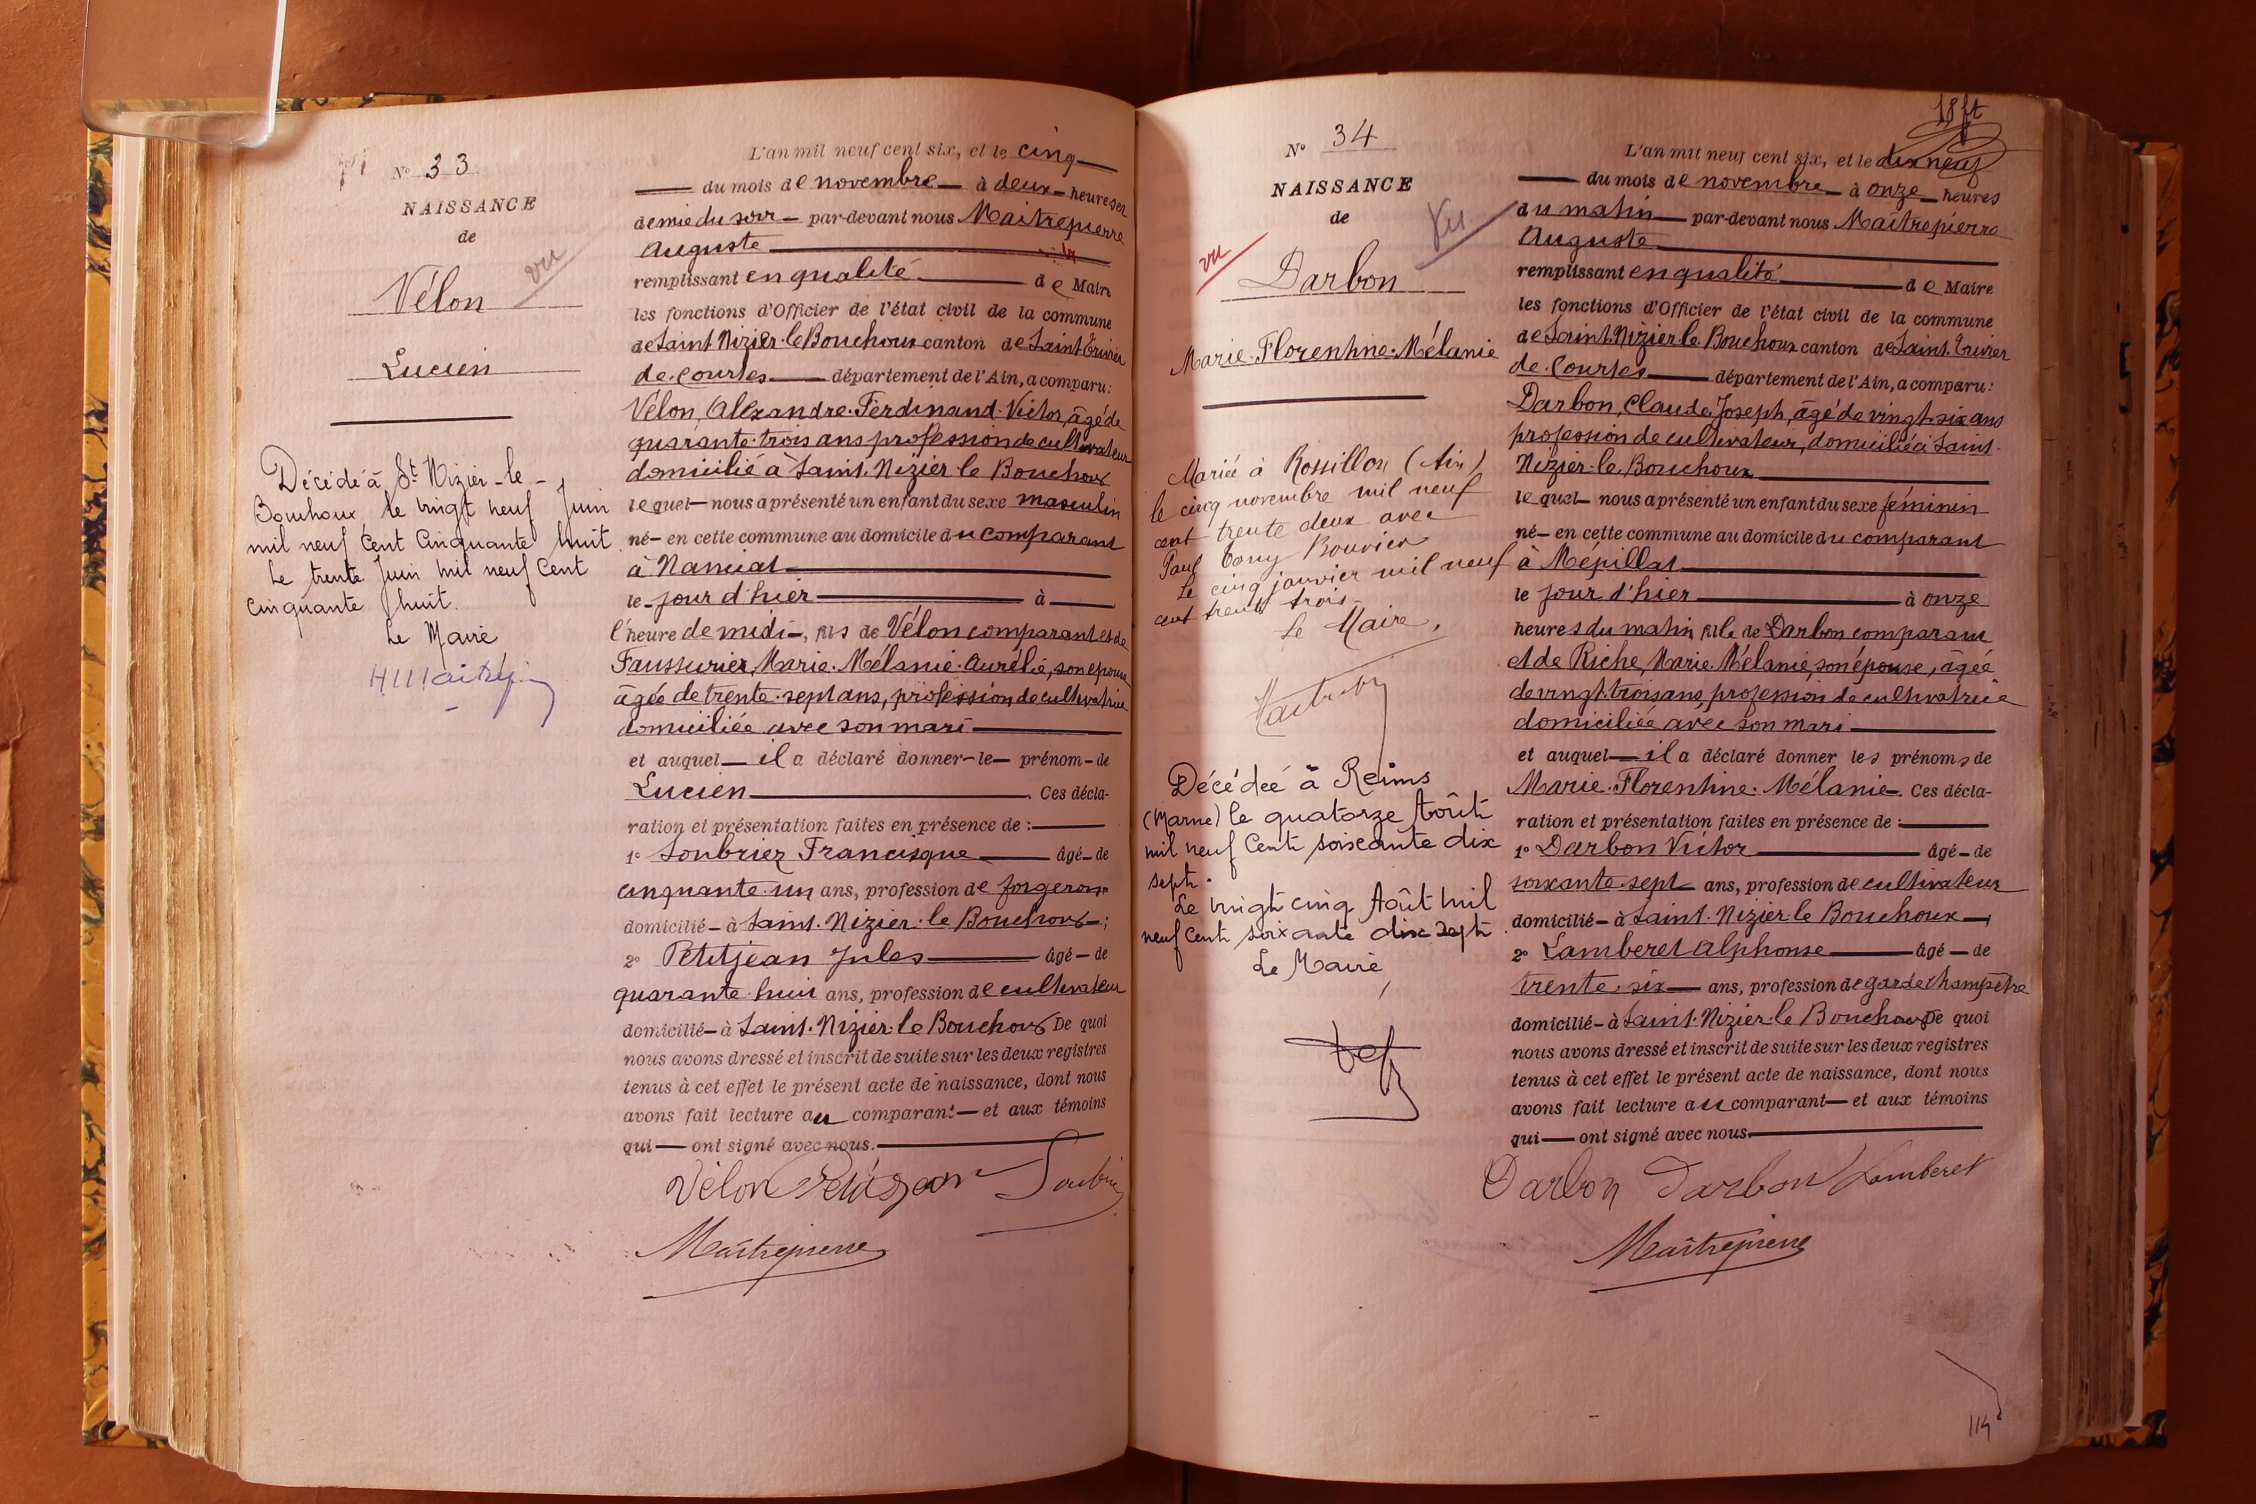 N° 33
NAISSANCE
de
vu
Vélon
Lucien
Décédé à St Nizier-le-
Bouchoux le vingt neuf Juin
mil neuf Cent Cinquante huit.
Le trente Juin mil neuf Cent
cinquante huit.
Le Maire
L'an mil neuf cent six, et le cinq
du mois de novembre à deux heures et
demie du soir par-devant nous Maîtrepierre
Auguste
remplissant en qualité de Maire
les fonctions d'Officier de l'état civil de la commune
de Saint Nizier-le Bouchoux canton de Saint Trivier
de Courtes département de l'Ain, a comparu:
Vélon, Alexandre Ferdinand Victor, âgé de
quarante-trois ans profession de cultivateur
domicilié à Saint-Nizier le Bouchoux
lequel nous a présenté un enfant du sexe masculin
né en cette commune au domicile du comparant
à Nanciat
le jour d'hier à
l'heure de midi, fils de Vélon comparant et de
Faussurier, Marie-Mélanie-Aurélie, son épouse
âgée de trente-sept ans, profession de cultivatrice
domiciliée avec son mari
et auquel il a déclaré donner le prénom de
Lucien. Ces décla-
ration et présentation faites en présence de :
1° Soubriez Francisque âgé de
cinquante-un ans, profession de forgeron
domicilié à Saint-Nizier-le Bouchoux ;
2° Petitjean Jules âgé de
quarante-huit ans, profession de cultivateur
domicilié à Saint-Nizier-le Bouchoux De quoi
nous avons dressé et inscrit de suite sur les deux registres
tenus à cet effet le présent acte de naissance, dont nous
avons fait lecture au comparant et aux témoins
qui ont signé avec nous.
Vélon Petitjean Soubriez
Maîtrepierre
N° 34
NAISSANCE
de
vu
Vu
Darbon
Marie-Florentine-Mélanie
Mariée à Rossillon (Ain)
le cinq novembre mil neuf
cent trente deux avec
Paul Tony Bouvier
Le cinq janvier mil neuf
cent trente trois
Le Maire,
Décédée à Reims
(Marne) le quatorze Août
mil neuf Cent soixante dix
sept.
Le vingt cinq Août mil
neuf Cent soixante dix sept.
Le Maire
L'an mil neuf cent six, et le dix neuf
du mois de novembre à onze heures
du matin par-devant nous Maîtrepierre
Auguste
remplissant en qualité de Maire
les fonctions d'Officier de l'état civil de la commune
de Saint-Nizier-le Bouchoux canton de Saint-Trivier
de Courtes département de l'Ain, a comparu:
Darbon, Claude Joseph, âgé de vingt-six ans
profession de cultivateur, domicilié à Saint-
Nizier-le-Bouchoux
lequel nous a présenté un enfant du sexe féminin
né en cette commune au domicile du comparant
à Mépillat
le jour d'hier à onze
heures du matin, fille de Darbon comparant
et de Riche, Marie-Mélanie, son épouse, âgée
de vingt-trois ans, profession de cultivatrice
domiciliée avec son mari
et auquel il a déclaré donner les prénoms de
Marie-Florentine-Mélanie. Ces décla-
ration et présentation faites en présence de :
1° Darbon Victor âgé de
soixante-sept ans, profession de cultivateur
domicilié à Saint-Nizier-le Bouchoux ;
2° Lamberet Alphonse âgé de
trente-six ans, profession de garde champêtre
domicilié à Saint-Nizier-le Bouchoux De quoi
nous avons dressé et inscrit de suite sur les deux registres
tenus à cet effet le présent acte de naissance, dont nous
avons fait lecture au comparant et aux témoins
qui ont signé avec nous
Darbon Darbon Lamberet
Maîtrepierre
114